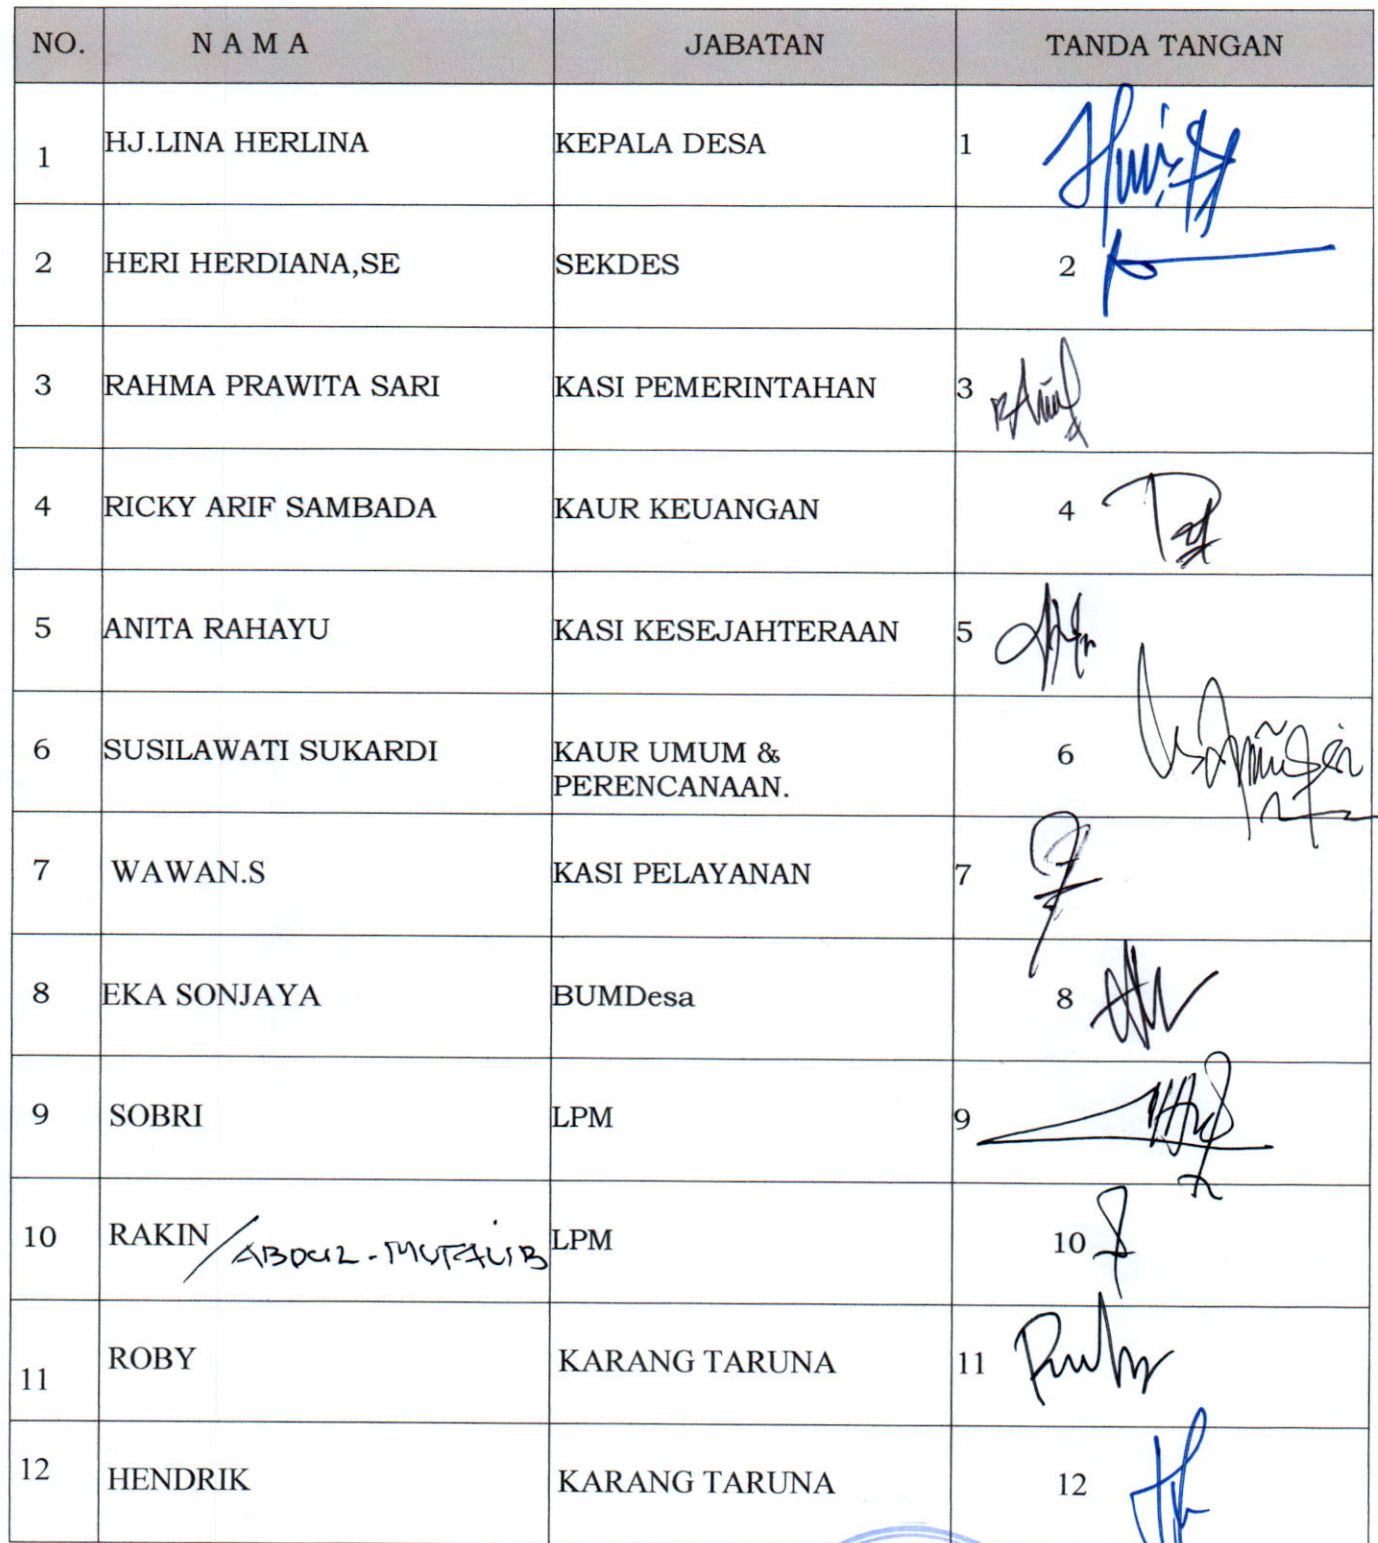 NO. N A M A JABATAN TANDA TANGAN
1 HJ.LINA HERLINA KEPALA DESA 1
2 HERI HERDIANA,SE SEKDES 2
3 RAHMA PRAWITA SARI KASI PEMERINTAHAN 3
4 RICKY ARIF SAMBADA KAUR KEUANGAN 4
5 ANITA RAHAYU KASI KESEJAHTERAAN 5
6 SUSILAWATI SUKARDI KAUR UMUM & 6
PERENCANAAN.
7 WAWAN.S KASI PELAYANAN 7
8 EKA SONJAYA BUMDesa 8
9 SOBRI LPM 9
10 RAKIN /ABDUL-MUTALIB LPM 10
11 ROBY KARANG TARUNA 11
12 HENDRIK KARANG TARUNA 12